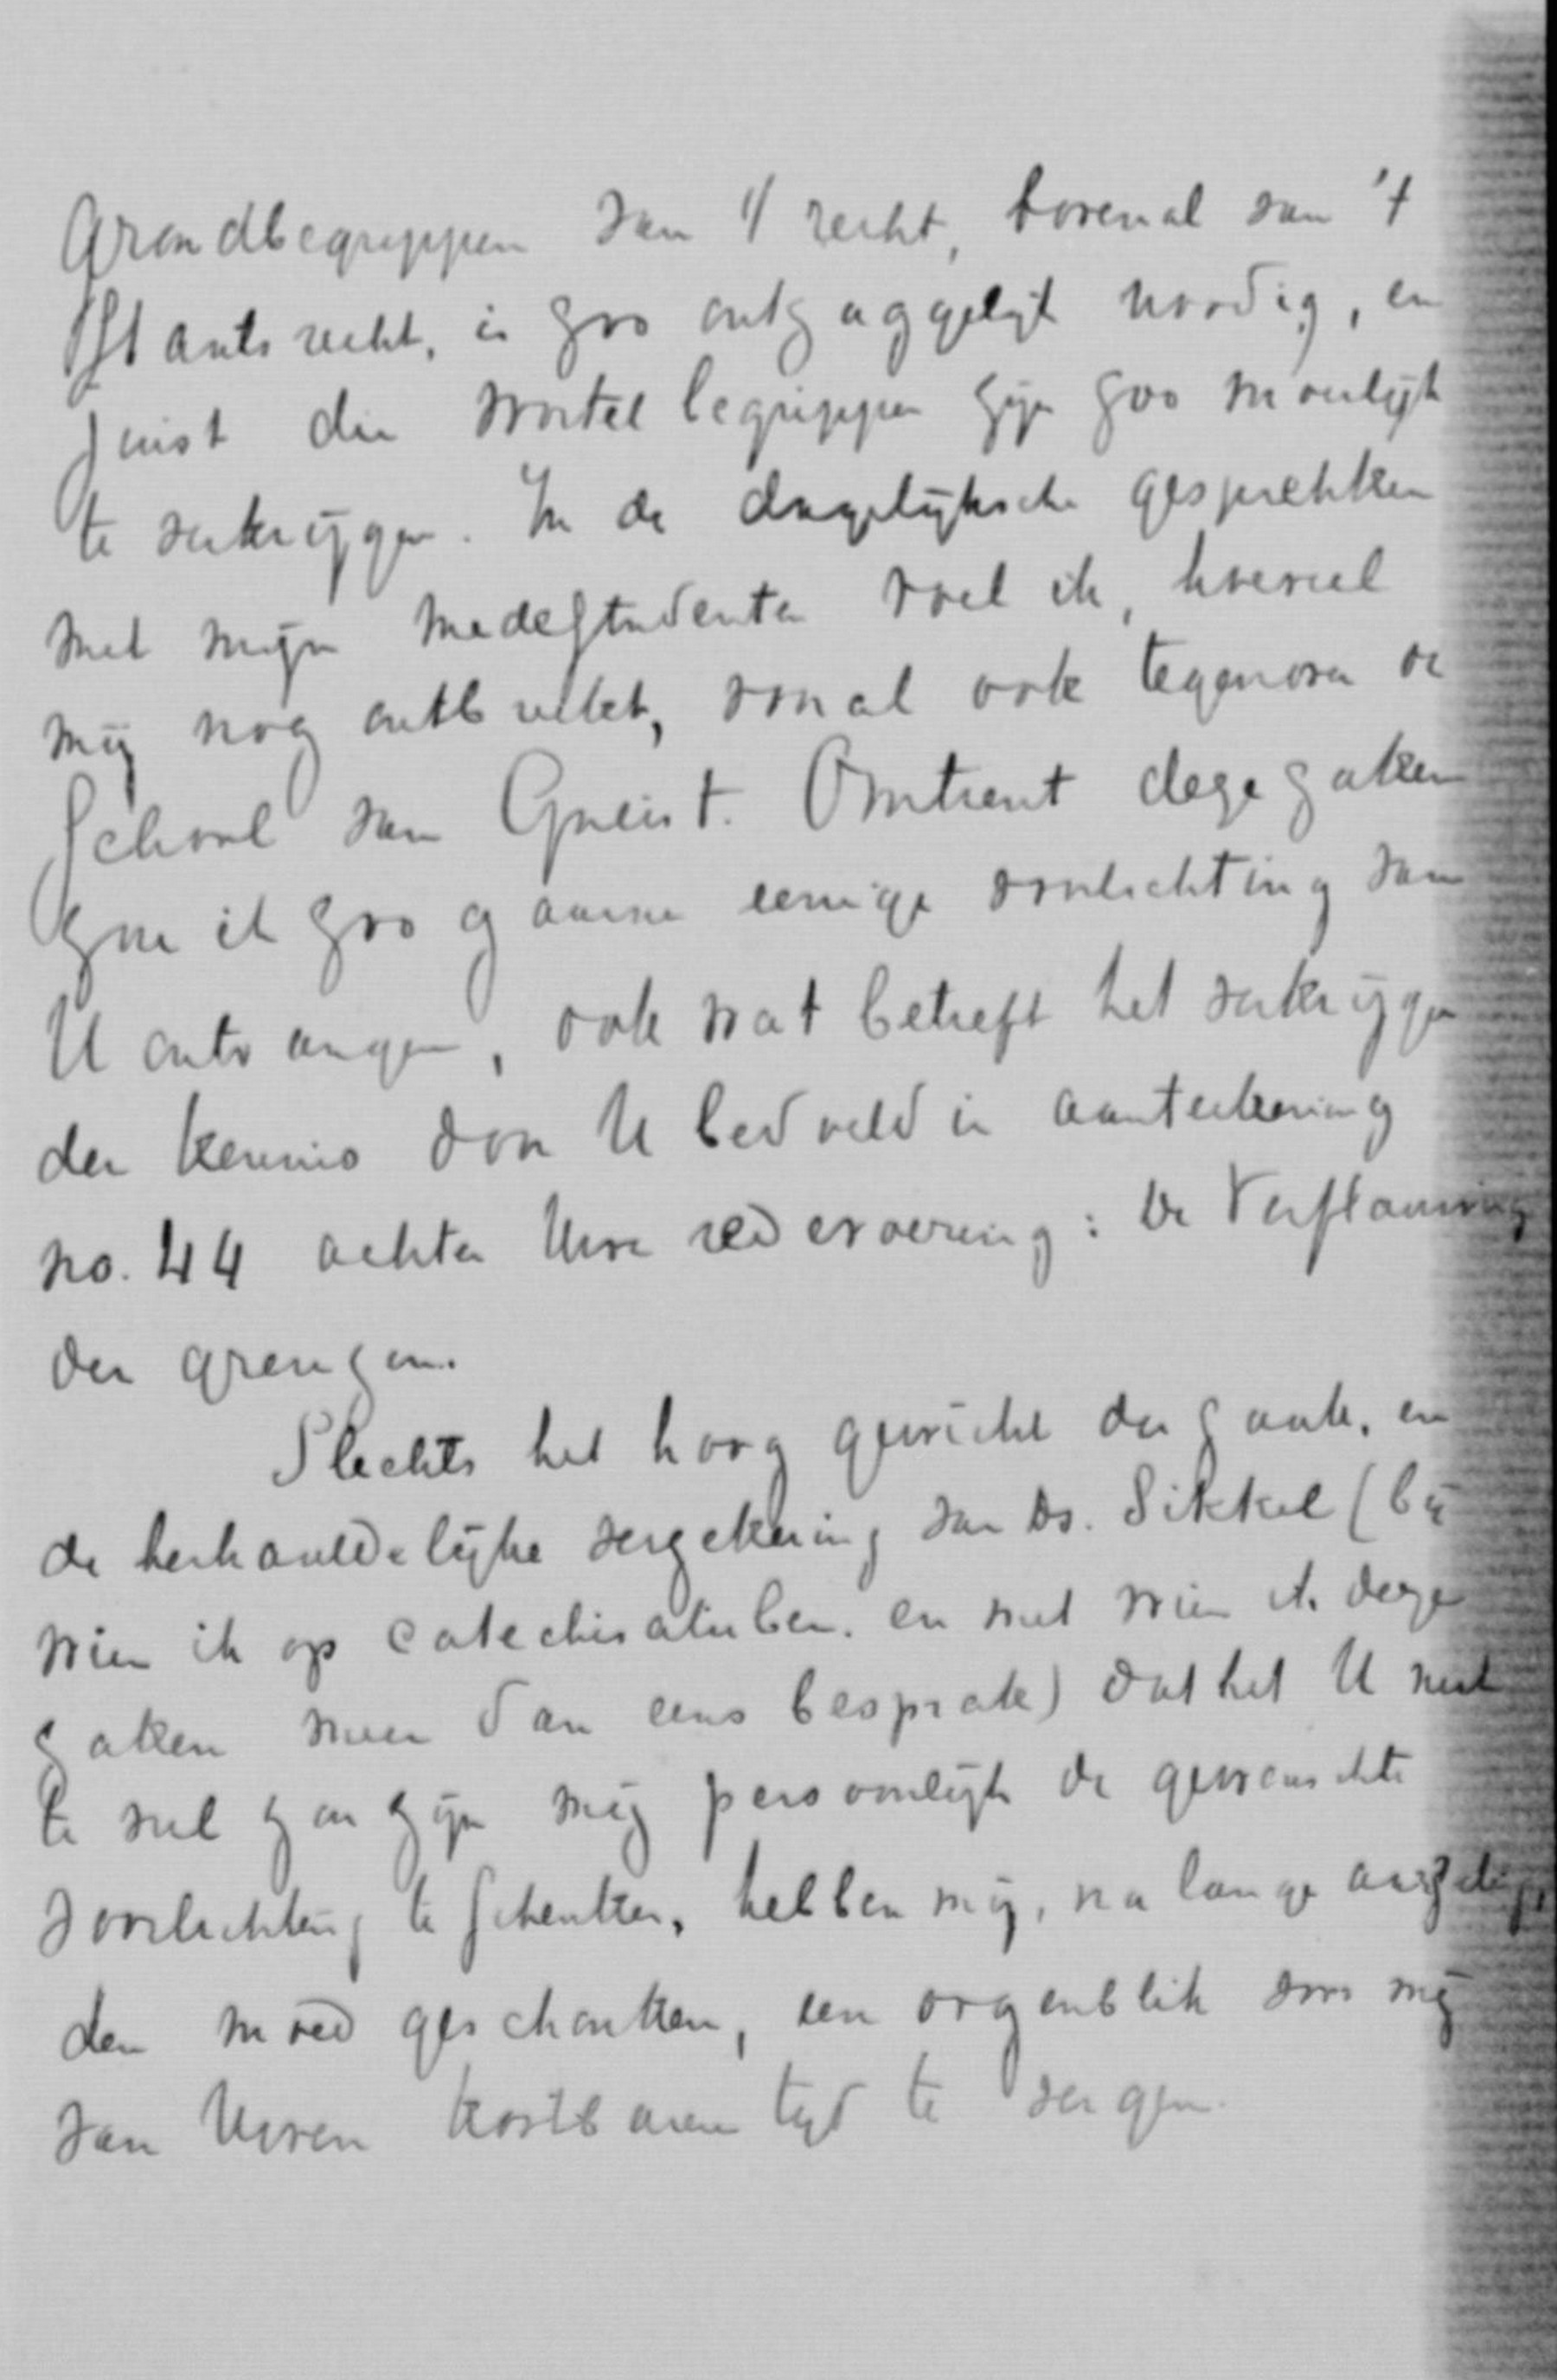 Grondbegrippen van 't recht, bovenal van 't
Staatsrecht, is zoo ontzaggelijk noodig, en
juist die wortelbegrippen zijn zoo moeilijk
te verkrijgen. In de dagelijksche gesprekken
met mijn medestudenten voel ik, hoeveel
mij nog ontbreekt, vooral ook tegenover de
School van Gneist. Omtrent deze zaken
zou ik zoo gaarne eenige voorlichting van
U ontvangen, ook wat betreft het verkrijgen
der kennis door U bedoeld in aanteekening
no. 44 achter Uwe redevoering: De Verflauwing
der grenzen.
Slechts het hoog gewicht der zaak, en
de herhaaldelijke verzekering van Ds. Sikkel (bij
wien ik op catechisatie ben, en met wien ik deze
zaken meer dan eens besprak) dat het U niet
te veel zou zijn mij persoonlijk de gewenschte
voorlichting te schenken, hebben mij, na lange aarzeling,
den moed geschonken, een oogenblik voor mij
van Uwen kostbaren tijd te vergen.